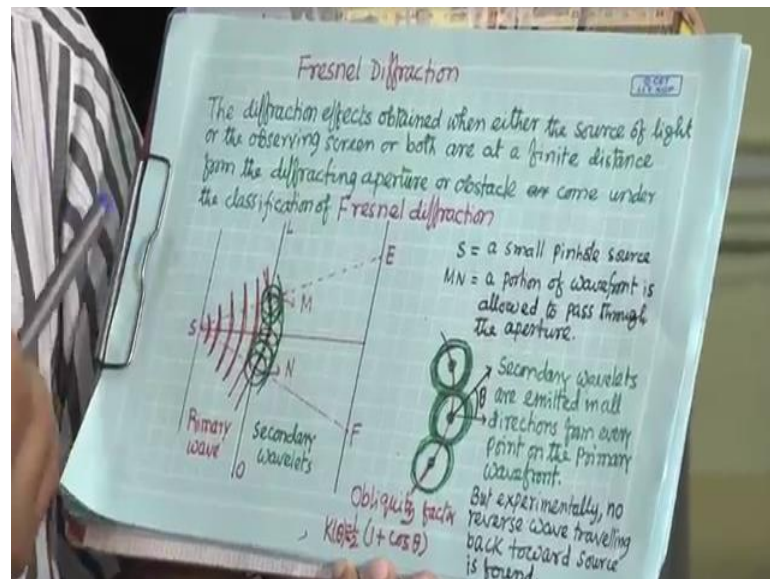 Fresnel Diffraction
The diffraction effects obtained when either the source of light
or the observing screen or both are at a finite distance
from the diffracting aperture or obstacle come under
the classification of Fresnel diffraction
L
E
S
M
N
F
O
Primary
wave
Secondary
wavelets
S = a small pinhole source
MN = a portion of wavefront is
allowed to pass through
the aperture.
θ
Secondary wavelets
are emitted in all
directions from every
point on the primary
wavefront.
But experimentally, no
reverse wave travelling
back toward source
is found
Obliquity factor
K(θ)=1/2 (1+cosθ)